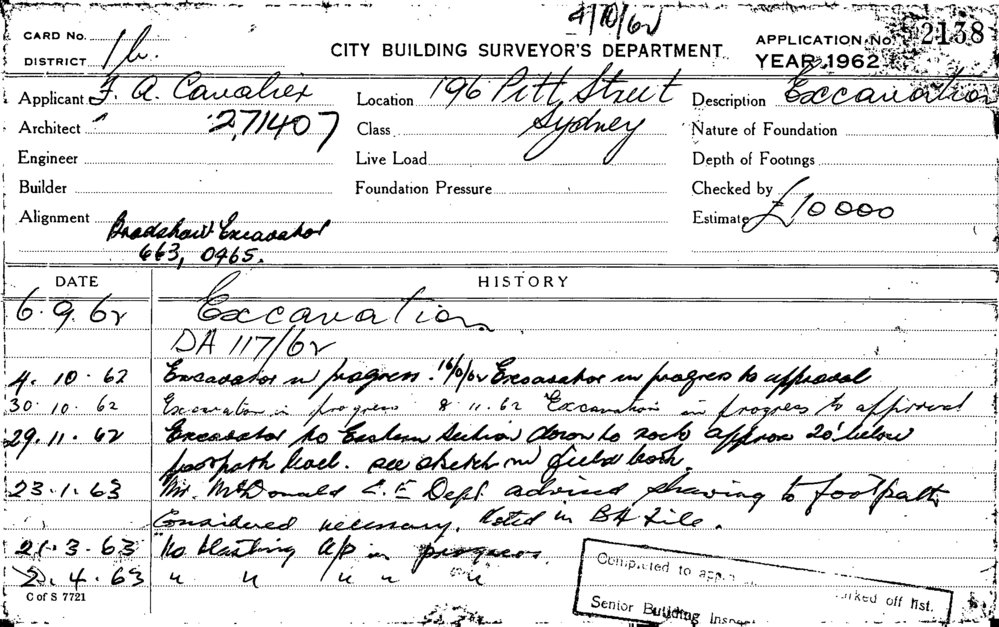 4/10/62
CARD No.
DISTRICT 1b.
CITY BUILDING SURVEYOR'S DEPARTMENT
APPLICATION No. 2138
YEAR 1962
Applicant F. A. Cavalier
Location 196 Pitt Street
Description Excavation
Architect 271407
Class Sydney
Nature of Foundation
Engineer
Live Load
Depth of Footings
Builder
Foundation Pressure
Checked by
Estimate £10000
Alignment
Bradshaw Excavator
663, 0465.
DATE HISTORY
6.9.62 Excavation
DA 117/62
4.10.62 Excavator in progress. Excavator in progress to approval
30.10.62 Excavation in progress 8.11.62 Excavation in progress to approval
29.11.62 Excavator to Eastern Section down to rock approx 20' below
footpath level. see sketch in field book.
23.1.63 Mr. McDonald C.E Dept. advised shoring to footpath
considered necessary. Noted in BH file.
21.3.63 No blasting in progress.
2.4.63 " " " " "
C of S 7721
Completed to
marked off list.
Senior Building